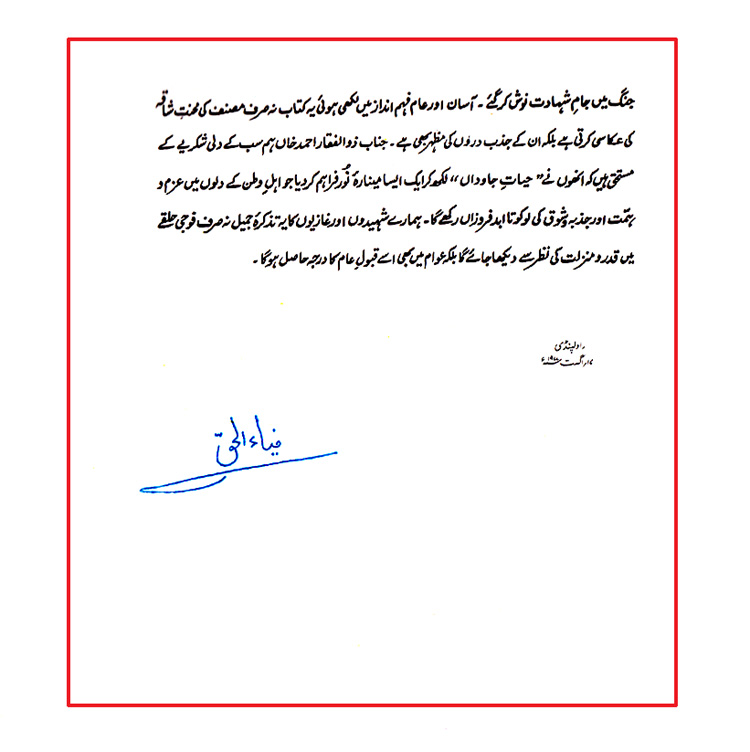 جنگ میں جامِ شہادت نوش کر گئے ۔ آسان اور عام فہم انداز میں لکھی ہوئی یہ کتاب نہ صرف مصنف کی محنتِ شاقہ
کی عکاسی کرتی ہے بلکہ ان کے جذب دروں کی مظہر بھی ہے ۔ جناب ذوالفقار احمد خاں ہم سب کے دلی شکریے کے
مستحق ہیں کہ انھوں نے ”حیاتِ جاوداں“ لکھ کر ایک ایسا مینارۂ نُور فراہم کر دیا جو اہلِ وطن کے دلوں میں عزم و
ہمّت اور جذبہ و شوق کی لو کو تا ابد فروزاں رکھے گا ۔ ہمارے شہیدوں اور غازیوں کا یہ تذکرۂ جمیل نہ صرف فوجی حلقے
میں قدر و منزلت کی نظر سے دیکھا جائے گا بلکہ عوام میں بھی اسے قبولِ عام کا درجہ حاصل ہو گا ۔
راولپنڈی
اگست
ضیاء الحق